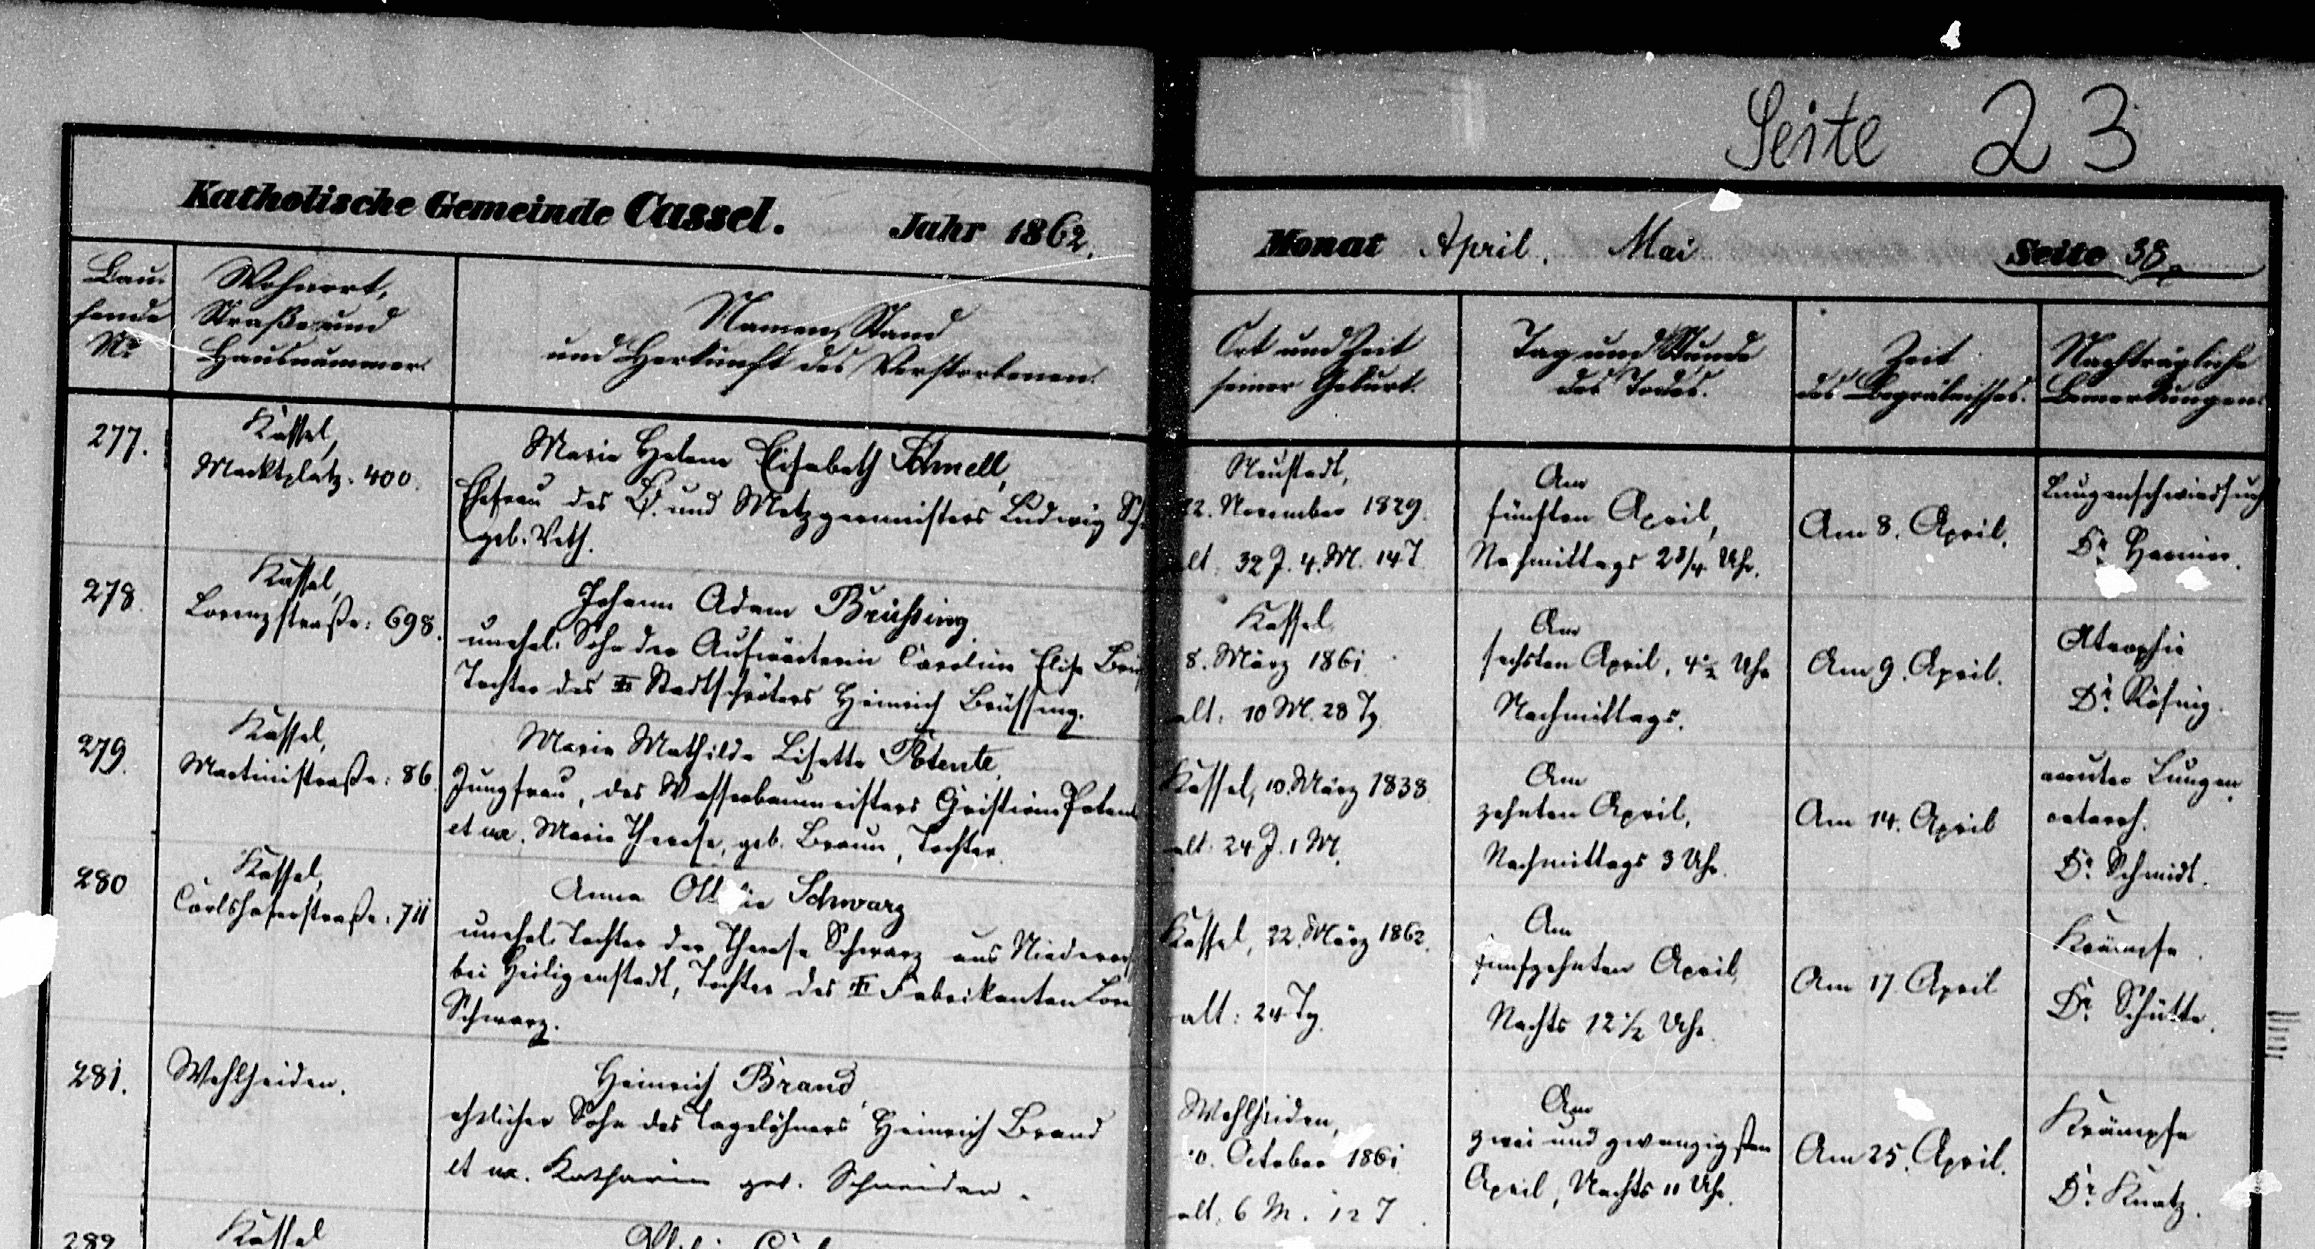 Seite 23
Katholische Gemeinde Cassel. Jahr 1862.
Monat April. Mai Seite 38.
Lau-
fende
No
Wohnort,
Straße und
Hausnummer.
Namen, Stand
und Herkunft des Verstorbenen.
Ort und Zeit
seiner Geburt.
Tag und Stunde
des Todes.
Zeit
des Begräbnisses.
Nachträgliche
Bemerkungen.
277.
Kassel,
Marktplatz. 400.
Marie Helene Elisabeth Schnell,
Ehefrau des B. und Metzgermeisters Ludwig Sch
geb. Veth.
Neustadt,
22. November 1829.
alt. 32 J. 4. M. 14 T
Am
fünften April,
Nachmittags 2 3/4 Uhr.
Am 8. April.
Lungenschwindsucht
Dr
278.
Kassel,
Lorenzstraße: 698.
Johann Adam Brüssing
unehel. Sohn der Aufwärterin Caroline Elise Brüs
Tochter des Stadtschröters Heinrich Brüssing.
Kassel,
8. März 1861.
alt: 10 M. 28 Tg.
Am
sechsten April, 4 1/2 Uhr
Nachmittags.
Am 9. April.
Atrophie
Dr
279.
Kassel,
Martinistraße: 86.
Marie Mathilde Lisette Potente,
Jungfrau, des Wasserbaumeisters Christian Potent
et ux. Marie Therese, geb. Braun, Tochter.
Kassel, 10. März 1838.
alt: 24 J. 1 M.
Am
zehnten April,
Nachmittags 3 Uhr.
Am 14. April
acuter Lungen
catarrh.
Dr Schmidt.
280
Kassel,
Carlshaferstraße: 711
Anna Ottilie Schwarz
unehel. Tochter der Therese Schwarz aus
bei Heiligenstadt, Tochter des Fabrikanten
Schwarz.
Kassel, 22. März 1862.
alt: 24 Tg.
Am
fünfzehnten April,
Nachts 12 1/2 Uhr.
Am 17. April
Krämpfe.
Dr Schütte.
281.
Wehlheiden.
Heinrich Brand,
ehelicher Sohn des Tagelöhners Heinrich Brand
et ux. Katharine geb. Schneider.
Wehlheiden,
10. October 1861
alt: 6 M. 12 T
Am
zwei und zwanzigsten
April, Nachts 11 Uhr.
Am 25. April.
Krämpfe
Dr Knatz.
282
Kassel